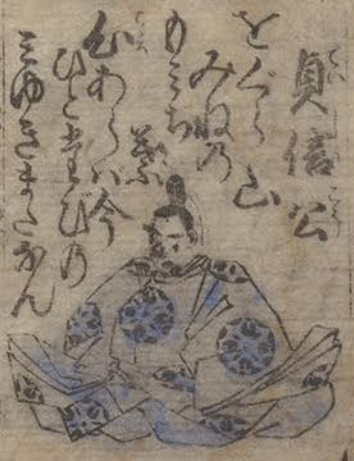 貞信公
をぐら山
みねの
もみぢ
葉
心あらバ今
ひとたびの
ミゆきまたなん